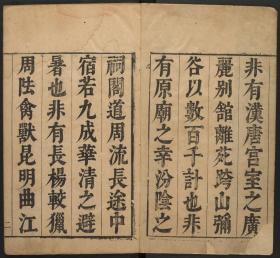 非有漢唐宮室之廣
麗別館離苑跨山彌
谷以數百千計也非
有原廟之幸汾陰之
祠閣道周流長途中
宿若九成華清之避
暑也非有長楊較獵
周阹禽獸昆明曲江